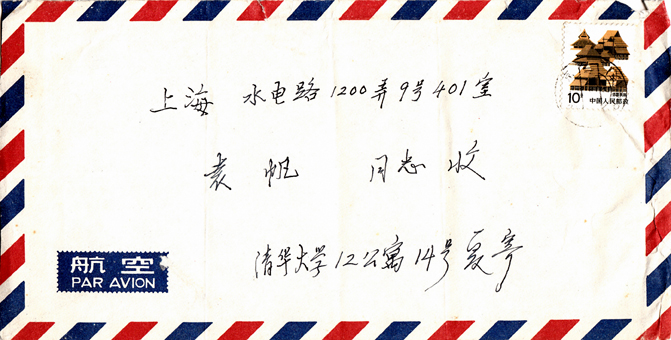 10分
中国人民邮政
上海 水电路1200弄9号401室
袁帆 同志收
清华大学12公寓14号 夏寄
航空
PAR AVION